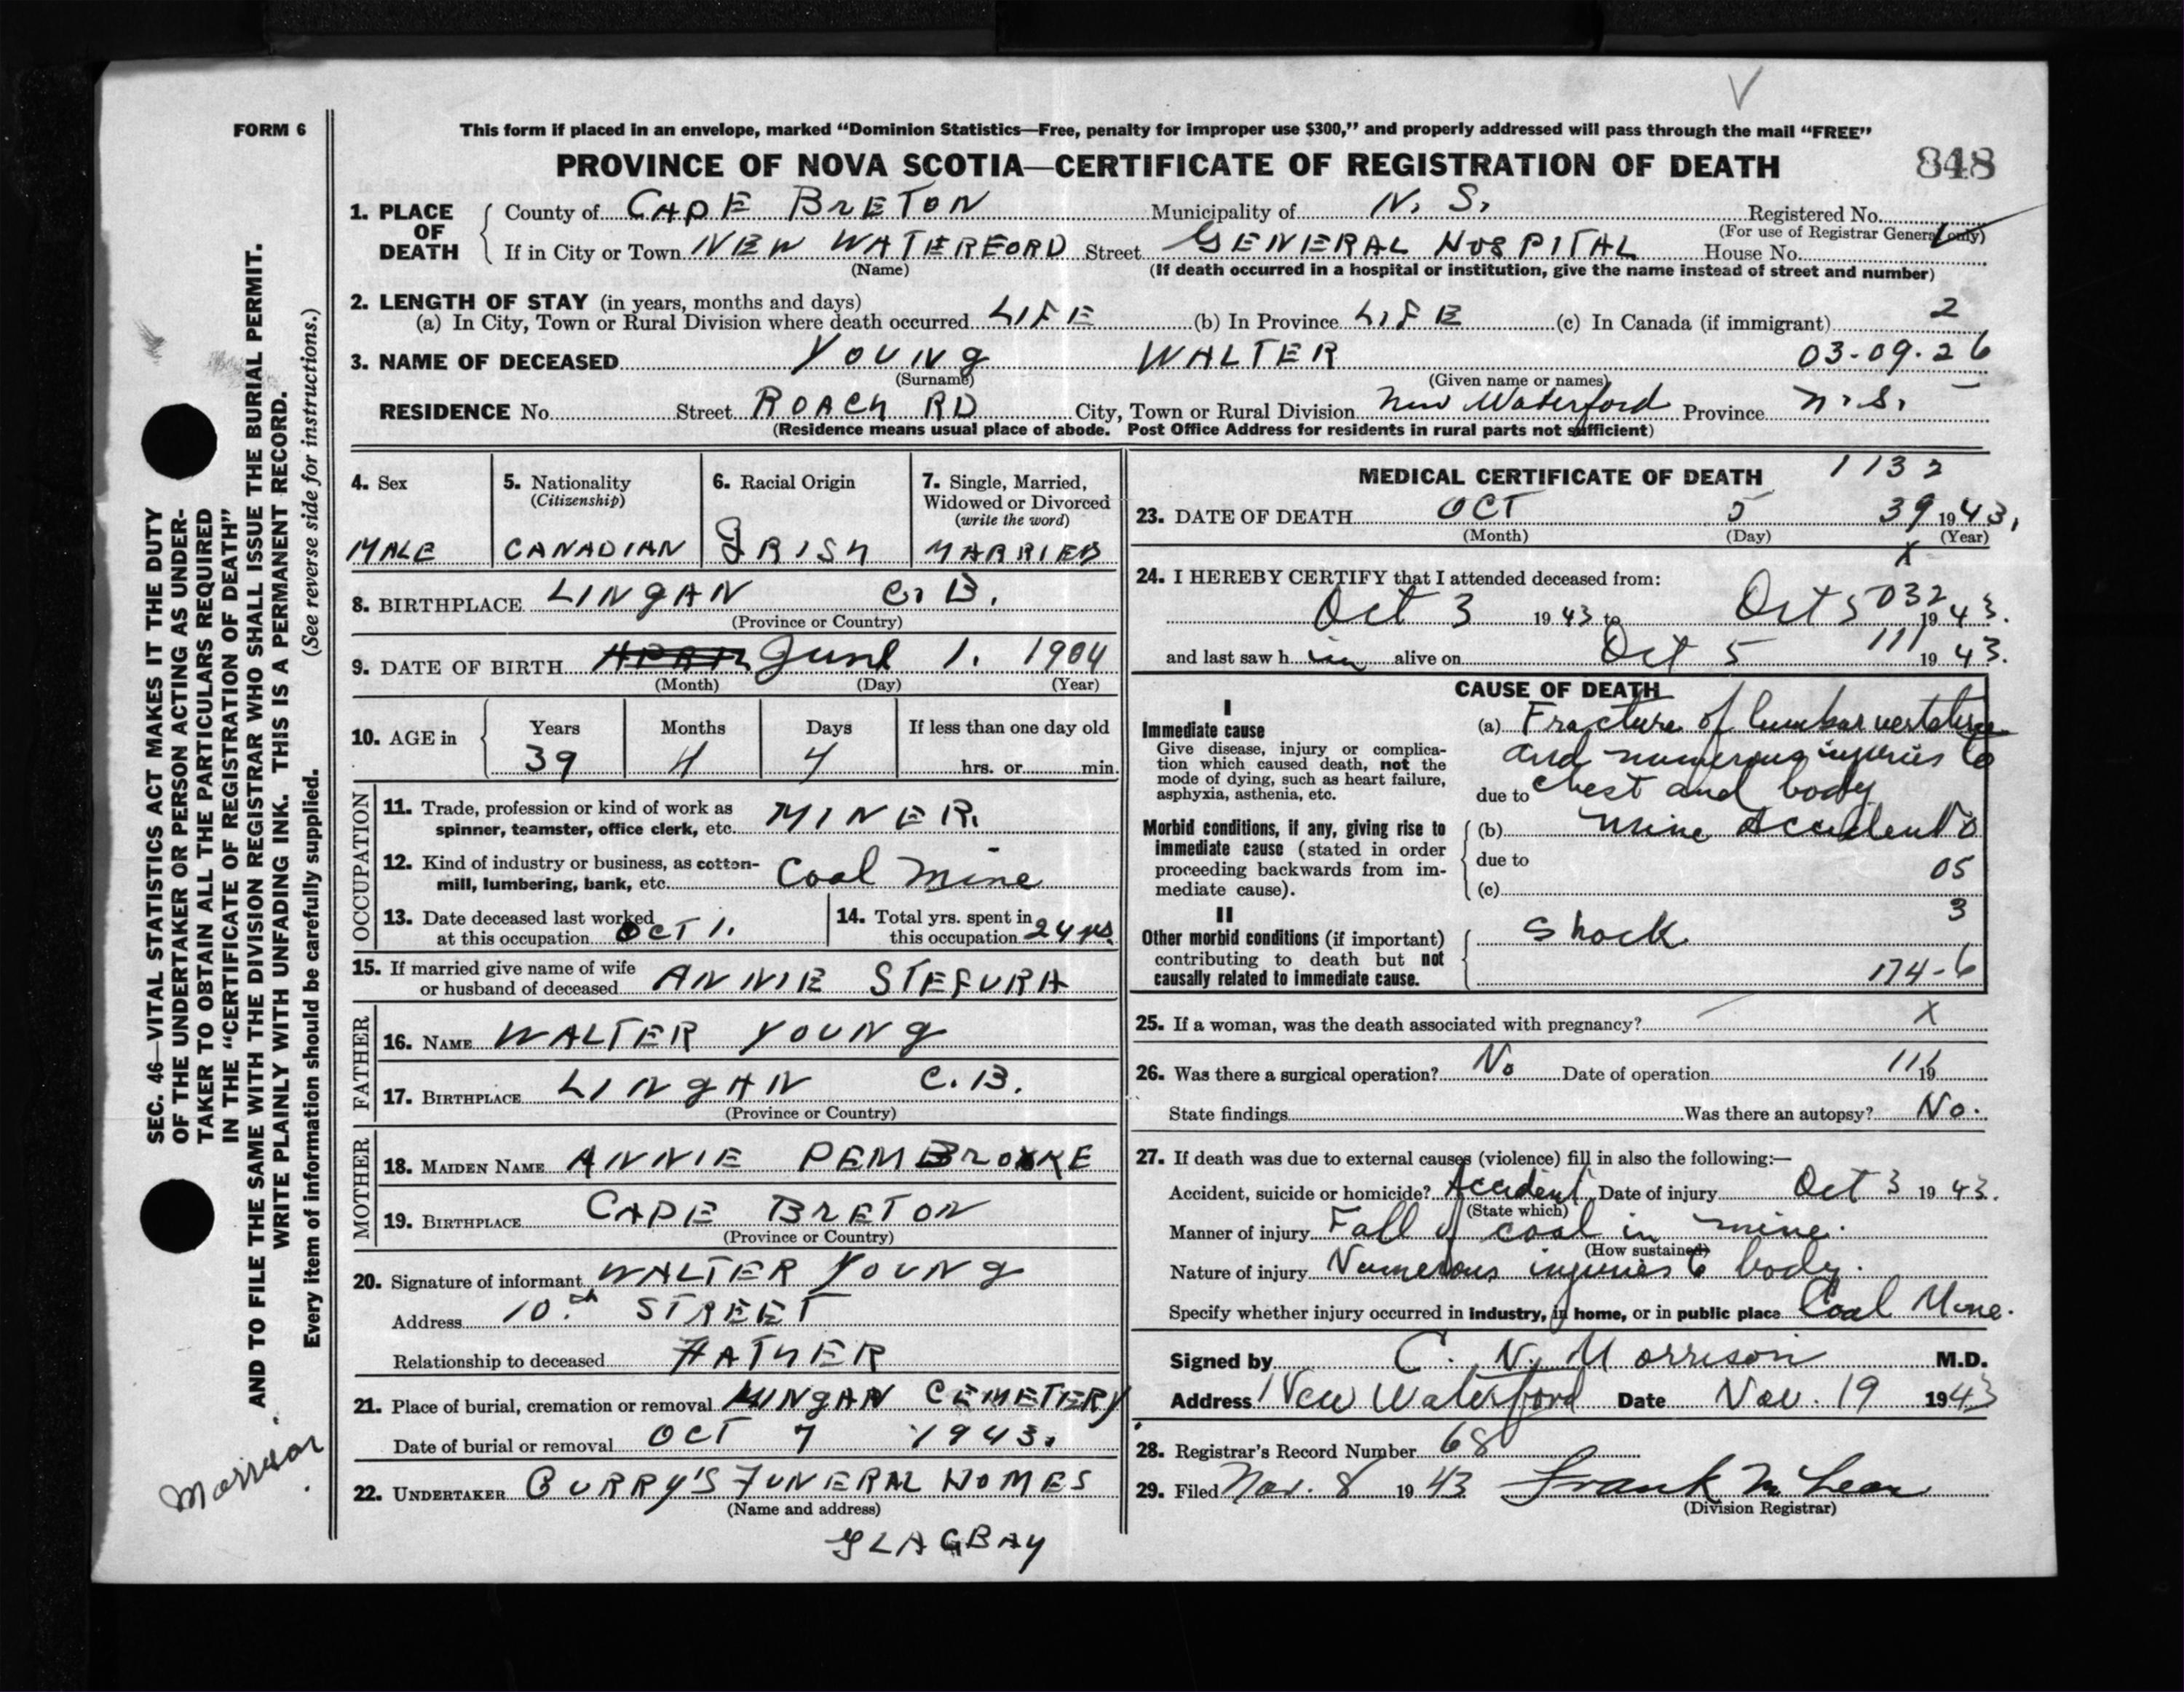 FORM 6
This form if placed in an envelope, marked “Dominion Statistics—Free, penalty for improper use $300,” and properly addressed will pass through the mail “FREE”
PROVINCE OF NOVA SCOTIA—CERTIFICATE OF REGISTRATION OF DEATH 848
1. PLACE OF DEATH
County of CAPE BRETON Municipality of N. S. Registered No.
(For use of Registrar General only)
If in City or Town NEW WATERFORD Street GENERAL HOSPITAL House No.
(Name) (If death occurred in a hospital or institution, give the name instead of street and number)
2. LENGTH OF STAY (in years, months and days)
(a) In City, Town or Rural Division where death occurred LIFE (b) In Province LIFE (c) In Canada (if immigrant) 2
3. NAME OF DECEASED YOUNG WALTER 03-09-26
(Surname) (Given name or names)
RESIDENCE No. Street ROACH RD City, Town or Rural Division New Waterford Province N.S.
(Residence means usual place of abode. Post Office Address for residents in rural parts not sufficient)
4. Sex
MALE
5. Nationality
(Citizenship)
CANADIAN
6. Racial Origin
IRISH
7. Single, Married,
Widowed or Divorced
(write the word)
MARRIED
8. BIRTHPLACE LINGAN C. B.
(Province or Country)
9. DATE OF BIRTH June 1. 1904
(Month) (Day) (Year)
10. AGE in
Years Months Days If less than one day old
39 4 4 hrs. or min.
OCCUPATION
11. Trade, profession or kind of work as
spinner, teamster, office clerk, etc. MINER.
12. Kind of industry or business, as cotton-
mill, lumbering, bank, etc. Coal Mine
13. Date deceased last worked
at this occupation OCT 1.
14. Total yrs. spent in
this occupation 24 yrs.
15. If married give name of wife
or husband of deceased ANNIE STEFURA
FATHER
16. NAME WALTER YOUNG
17. BIRTHPLACE LINGAN C. B.
(Province or Country)
MOTHER
18. MAIDEN NAME ANNIE PEMBROKE
19. BIRTHPLACE CAPE BRETON
(Province or Country)
20. Signature of informant WALTER YOUNG
Address 10th STREET
Relationship to deceased FATHER
21. Place of burial, cremation or removal LINGAN CEMETERY
Date of burial or removal OCT 7 1943.
22. UNDERTAKER CURRY'S FUNERAL HOMES
(Name and address)
GLACBAY
MEDICAL CERTIFICATE OF DEATH 1132
23. DATE OF DEATH OCT 5 39 1943.
(Month) (Day) (Year)
X
24. I HEREBY CERTIFY that I attended deceased from:
Oct 3 1943 to Oct 5 032 1943.
and last saw him alive on Oct 5 111 1943.
CAUSE OF DEATH
I
Immediate cause
Give disease, injury or complica-
tion which caused death, not the
mode of dying, such as heart failure,
asphyxia, asthenia, etc.
(a) Fracture of lumbar vertebrae
and numerous injuries to
due to chest and body
Morbid conditions, if any, giving rise to
immediate cause (stated in order
proceeding backwards from im-
mediate cause).
(b) Mine Accident
due to
05
(c)
II
Other morbid conditions (if important)
contributing to death but not
causally related to immediate cause.
3
Shock
174-6
25. If a woman, was the death associated with pregnancy? X
26. Was there a surgical operation? No Date of operation 111 19
State findings Was there an autopsy? No.
27. If death was due to external causes (violence) fill in also the following:—
Accident, suicide or homicide? Accident Date of injury Oct 3 1943.
(State which)
Manner of injury Fall of coal in mine.
(How sustained)
Nature of injury Numerous injuries to body.
Specify whether injury occurred in industry, in home, or in public place Coal Mine.
Signed by C. N. Morrison M.D.
Address New Waterford Date Nov. 19 1943
28. Registrar's Record Number 68
29. Filed Nov. 8 1943 Frank McLean
(Division Registrar)
SEC. 46—VITAL STATISTICS ACT MAKES IT THE DUTY
OF THE UNDERTAKER OR PERSON ACTING AS UNDER-
TAKER TO OBTAIN ALL THE PARTICULARS REQUIRED
IN THE “CERTIFICATE OF REGISTRATION OF DEATH”
AND TO FILE THE SAME WITH THE DIVISION REGISTRAR WHO SHALL ISSUE THE BURIAL PERMIT.
WRITE PLAINLY WITH UNFADING INK. THIS IS A PERMANENT RECORD.
Every item of information should be carefully supplied. (See reverse side for instructions.)
Morrison